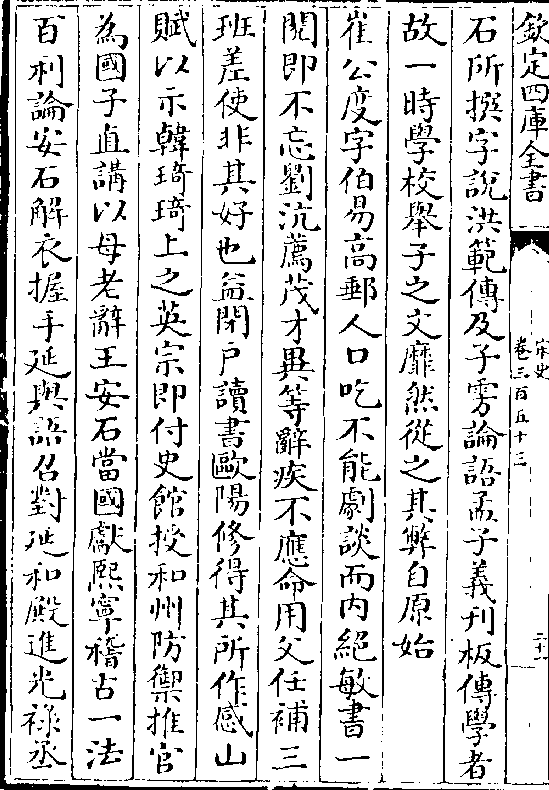 欽定四庫全書
宋史
卷三百五十三
二十一
石所撰字說洪範傳及子雱論語孟子義刊板傳學者
故一時學校舉子之文靡然從之其弊自原始
崔公度字伯易高郵人口吃不能劇談而内絕敏書一
閱即不忘劉沆薦茂才異等辭疾不應命用父任補三
班差使非其好也益閉户讀書歐陽修得其所作感山
賦以示韓琦琦上之英宗即付史館授和州防禦推官
為國子直講以母老辭王安石當國獻熙寧稽古一法
百利論安石解衣握手延與語召對延和殿進光祿丞